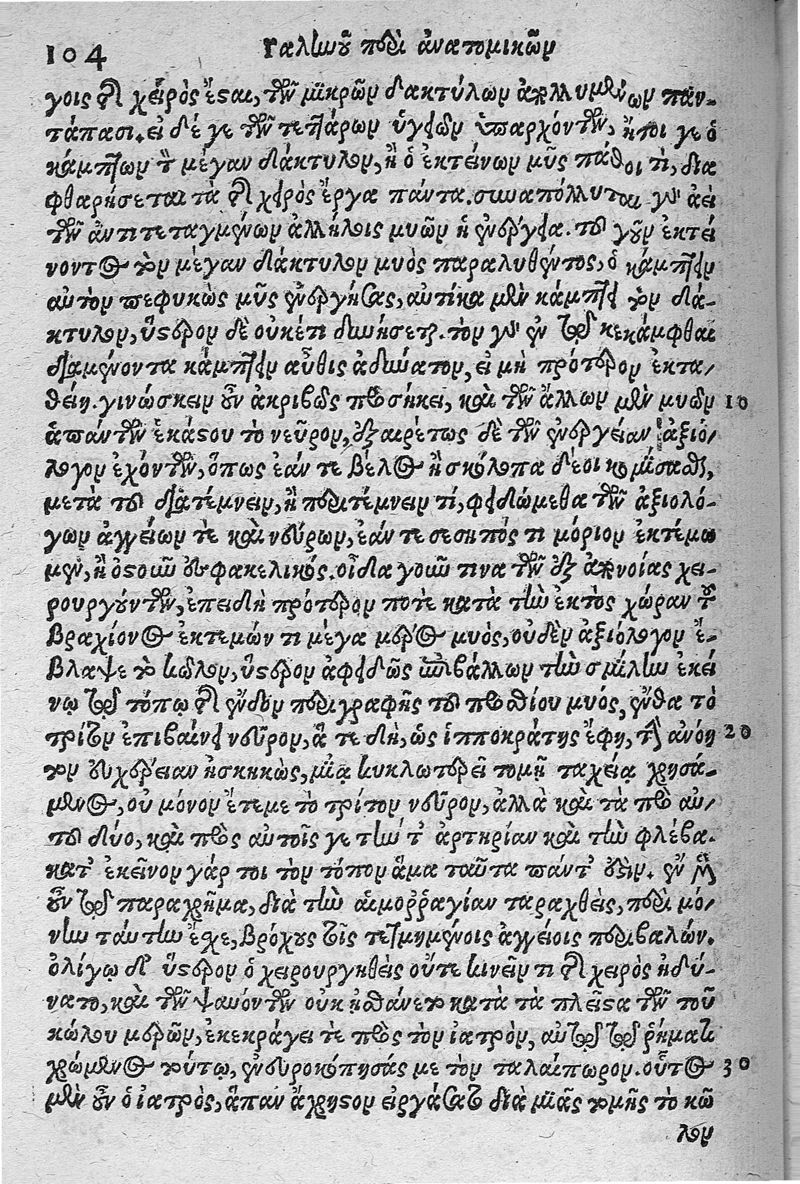 104 Γαληνοῦ περὶ ἀνατομικῶν
γοις τῆς χειρὸς ἔσται, τῶν μικρῶν δακτύλων ἀπολλυμένων παν-
τάπασι. εἰ δέ γε τῶν τεττάρων ὑγιῶν ὑπαρχόντων, ἤτοι γε ὁ
κάμπτων τὸν μέγαν δάκτυλον, ἢ ὁ ἐκτείνων μῦς πάθοι τὶ, δια
φθαρήσεται τὰ τῆς χειρὸς ἔργα πάντα. συναπόλλυται γὰρ ἀεὶ
τῶν ἀντιτεταγμένων ἀλλήλοις μυῶν ἡ ἐνέργεια. τοῦ γοῦν ἐκτεί
νοντος τὸν μέγαν δάκτυλον μυὸς παραλυθέντος, ὁ κάμπτειν
αὐτὸν πεφυκὼς μῦς ἐνεργήσας, αὐτίκα μὲν κάμπτει τὸν δά-
κτυλον, ὕστερον δὲ οὐκέτι δυνήσεται. τὸν γὰρ ἐν τῷ κεκάμφθαι
διαμένοντα κάμπτειν αὖθις ἀδύνατον, εἰ μὴ πρότερον ἐκτα/
θείη. γινώσκειν οὖν ἀκριβῶς προσήκει, καὶ τῶν ἄλλων μὲν μυῶν 10
ἁπάντων ἑκάστου τὸ νεῦρον, ἐξαιρέτως δὲ τῶν ἐνέργειαν ἀξιό/
λογον ἐχόντων, ὅπως ἐάν τε βέλος ἢ σκόλοπα δέοι κομίσασθαι,
μετὰ τοῦ διατέμνειν, ἢ περιτέμνειν τί, φειδώμεθα τῶν ἀξιολό-
γων ἀγγείων τὲ καὶ νεύρων, ἐάν τε σεσηπός τι μόριον ἐκτέμω
μεν, ἢ ὀστοῦν σφακελικός. οἶδα γοῦν τινα τῶν ἐξ ἀπονοίας χει-
ρουργούντων, ἐπειδὴ πρότερον ποτὲ κατὰ τὴν ἐκτὸς χώραν τοῦ
βραχίονος ἐκτεμών τι μέγα μέρος μυός, οὐδὲν ἀξιόλογον ἔ-
βλαψε τὸ κῶλον, ὕστερον ἀφειδῶς ἐπιβάλλων τὴν σμίλην ἐκεί
νῳ τῷ τόπῳ τῆς ἔνδον περιγραφῆς τοῦ προσθίου μυός, ἔνθα τὸ
τρίτον ἐπιβαίνει νεῦρον, ἅ τε δὴ, ὡς ἱπποκράτης ἔφη, τῇ ἀνόη 20
τον εὐχέρειαν ἠσκηκὼς, μιᾷ κυκλωτερεῖ τομῇ ταχείᾳ χρησά-
μενος, οὐ μόνον ἔτεμε τὸ τρίτον νεῦρον, ἀλλὰ καὶ τὰ πρὸ αὐ/
τοῦ δύο, καὶ πρὸς αὐτοῖς γε τήν τ' ἀρτηρίαν καὶ τὴν φλέβα.
κατ' ἐκεῖνον γάρ τοι τὸν τόπον ἅμα ταῦτα πάντ' ἐστιν. ἐν μὲν
οὖν τῷ παραχρῆμα, διὰ τὴν αἱμοῤῥαγίαν ταραχθεὶς, περὶ μό-
νην ταύτην εἶχε, βρόχους τοῖς τετμημένοις ἀγγείοις περιβαλών.
ὀλίγῳ δ' ὕστερον ὁ χειρουργηθεὶς οὔτε κινεῖν τι τῆς χειρὸς ἠδύ-
νατο, καὶ τῶν ψαυόντων οὐκ ᾐσθάνετο κατὰ τὰ πλεῖστα τῶν τοῦ
κώλου μερῶν, ἐκεκράγει τὲ πρὸς τὸν ἰατρὸν, αὐτῷ τῷ ῥήματι
χρώμενος τούτῳ, ἐνευροκόπησάς με τὸν ταλαίπωρον. οὗτος 30
μὲν οὖν ὁ ἰατρὸς, ἅπαν ἄχρηστον εἰργάσατο διὰ μιᾶς τομῆς τὸ κῶ
λον